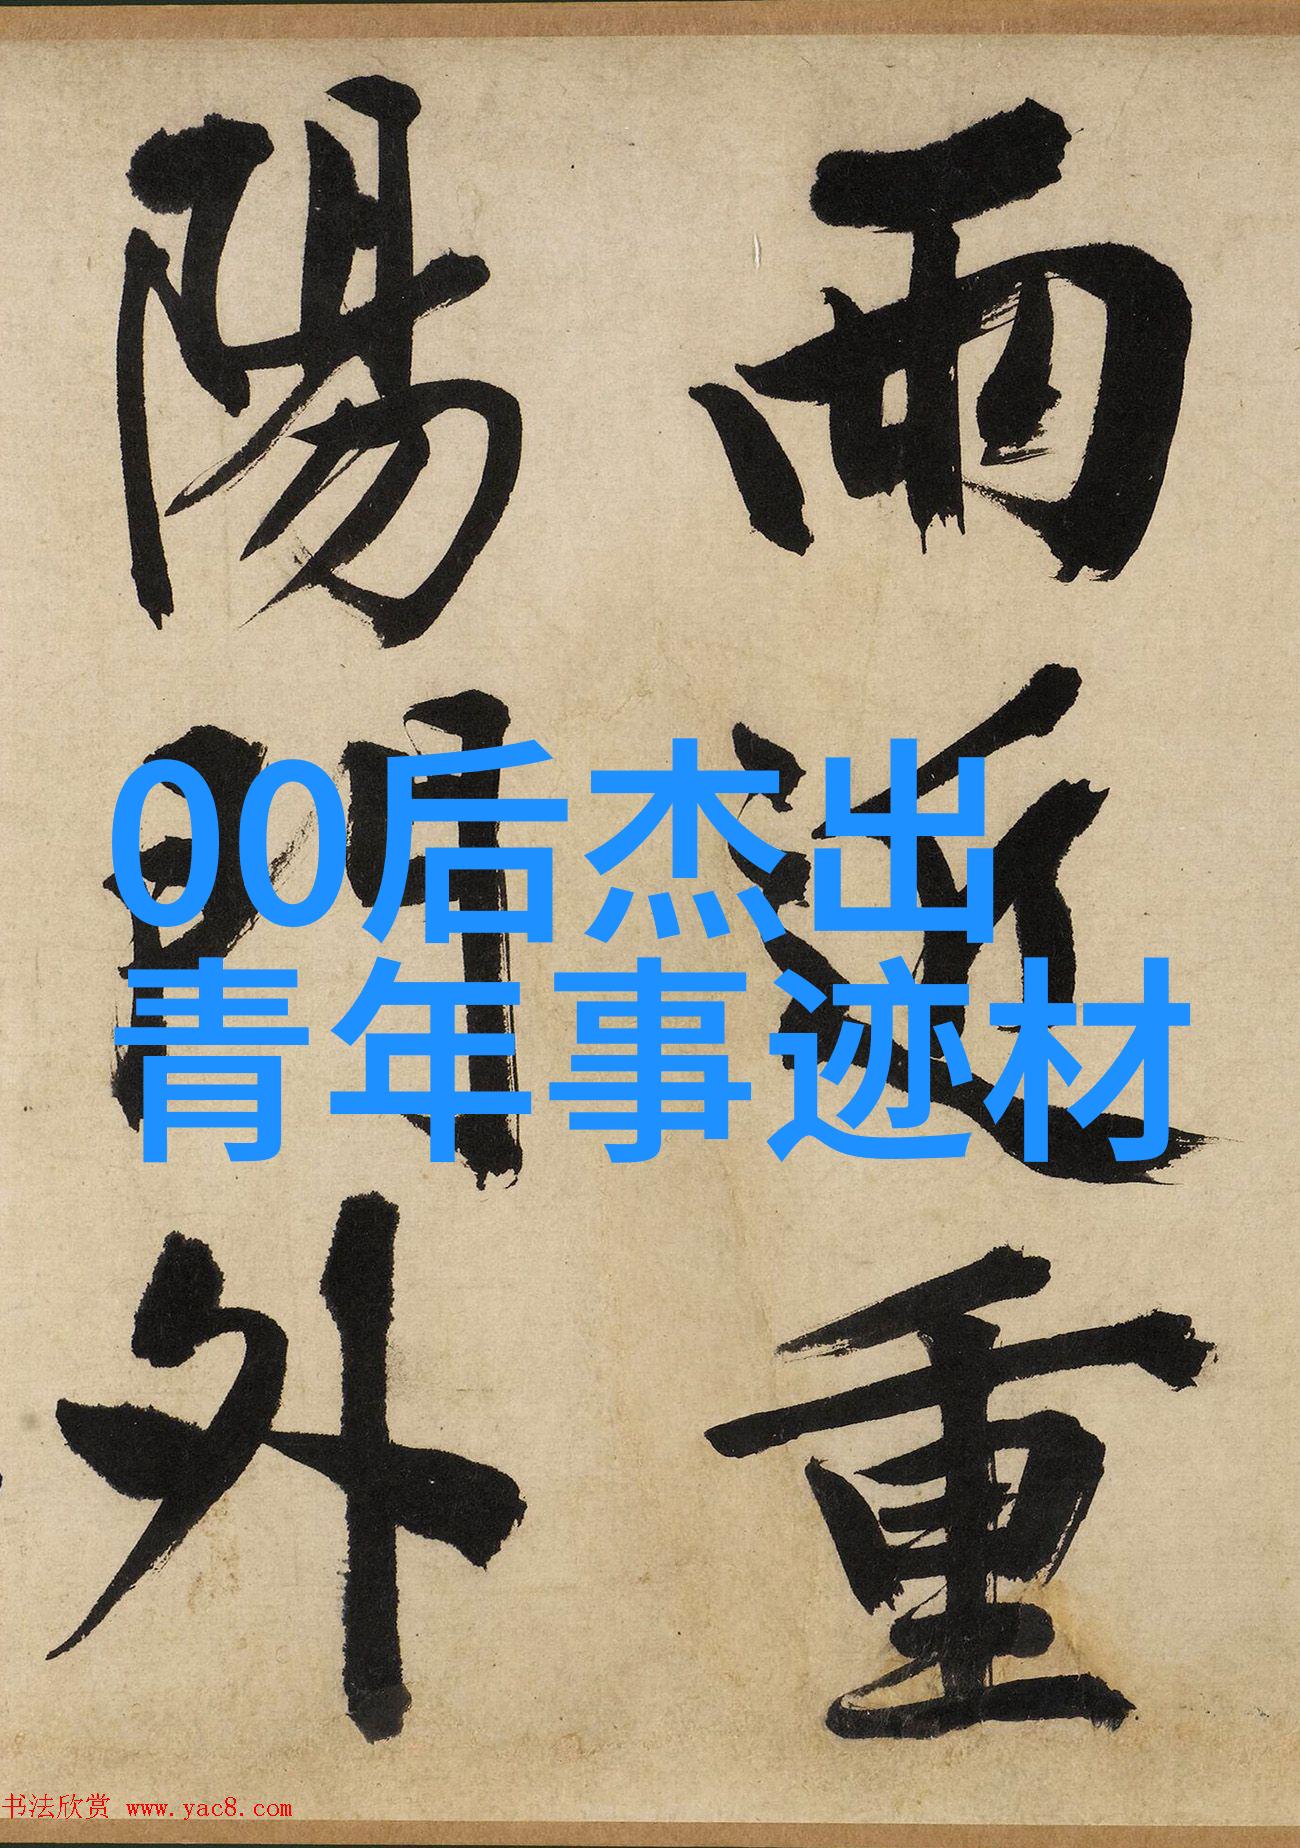 雨近重
陽門外
00后杰出
青年事迹材
书法欣赏 www.yac8.com